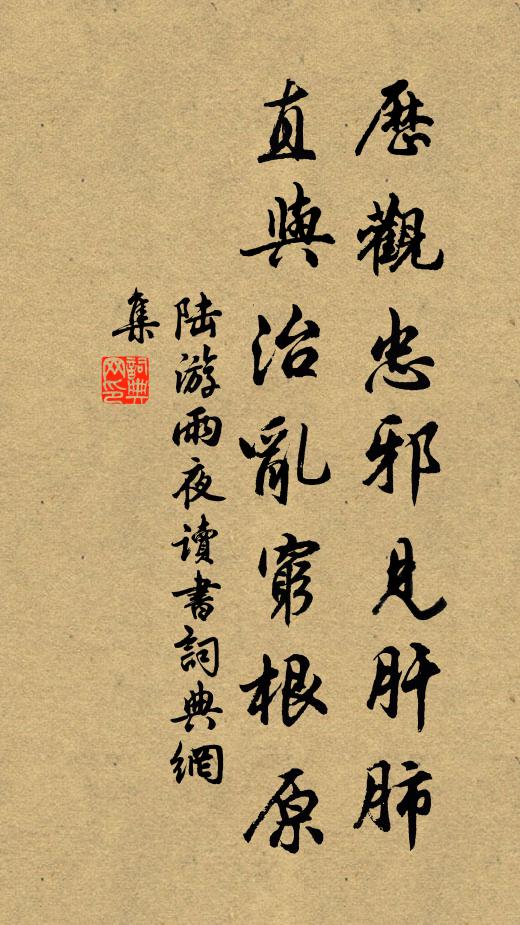 歷觀忠邪見肝肺
直與治亂窮根原
陆游雨夜讀書詞典網
集
詞典
网印